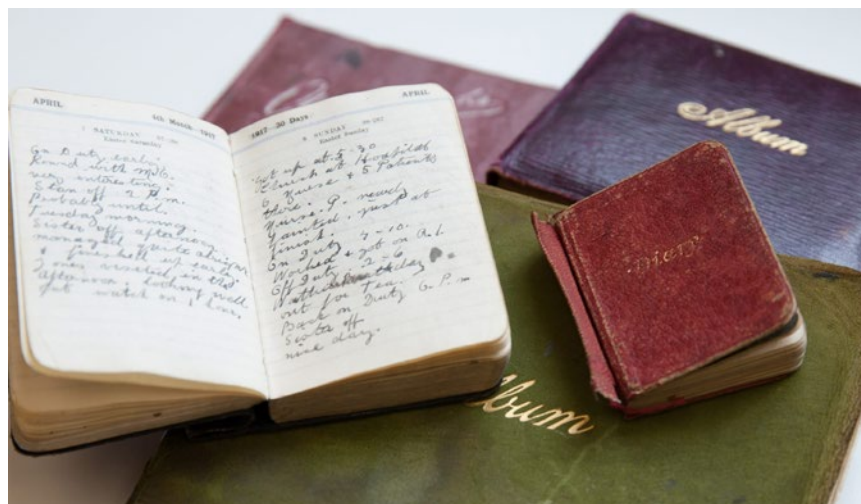 APRIL
4th Month 1917
7 SATURDAY
Easter Saturday
On Duty early.
Round with M.O.
very interesting.
Stan off 2 P.m.
Probably until
Tuesday morning.
Sister off afternoon.
managed quite alright
& finished up early.
in the
afternoon, looking well
Put watch on 1 hour.
APRIL
1917—30 Days
8 SUNDAY
Easter Sunday
Got up at 5-30
Church at Hospital
6 Nurse & 5 Patients
there.
Nurse. P. nearly
fainted. just at
finish.
On Duty 7-10.
Worked & got on A.1.
Off Duty 2-6
out for Tea.
Back on Duty 6. P.m
Sister off
nice day.
Album
Diary
lbum